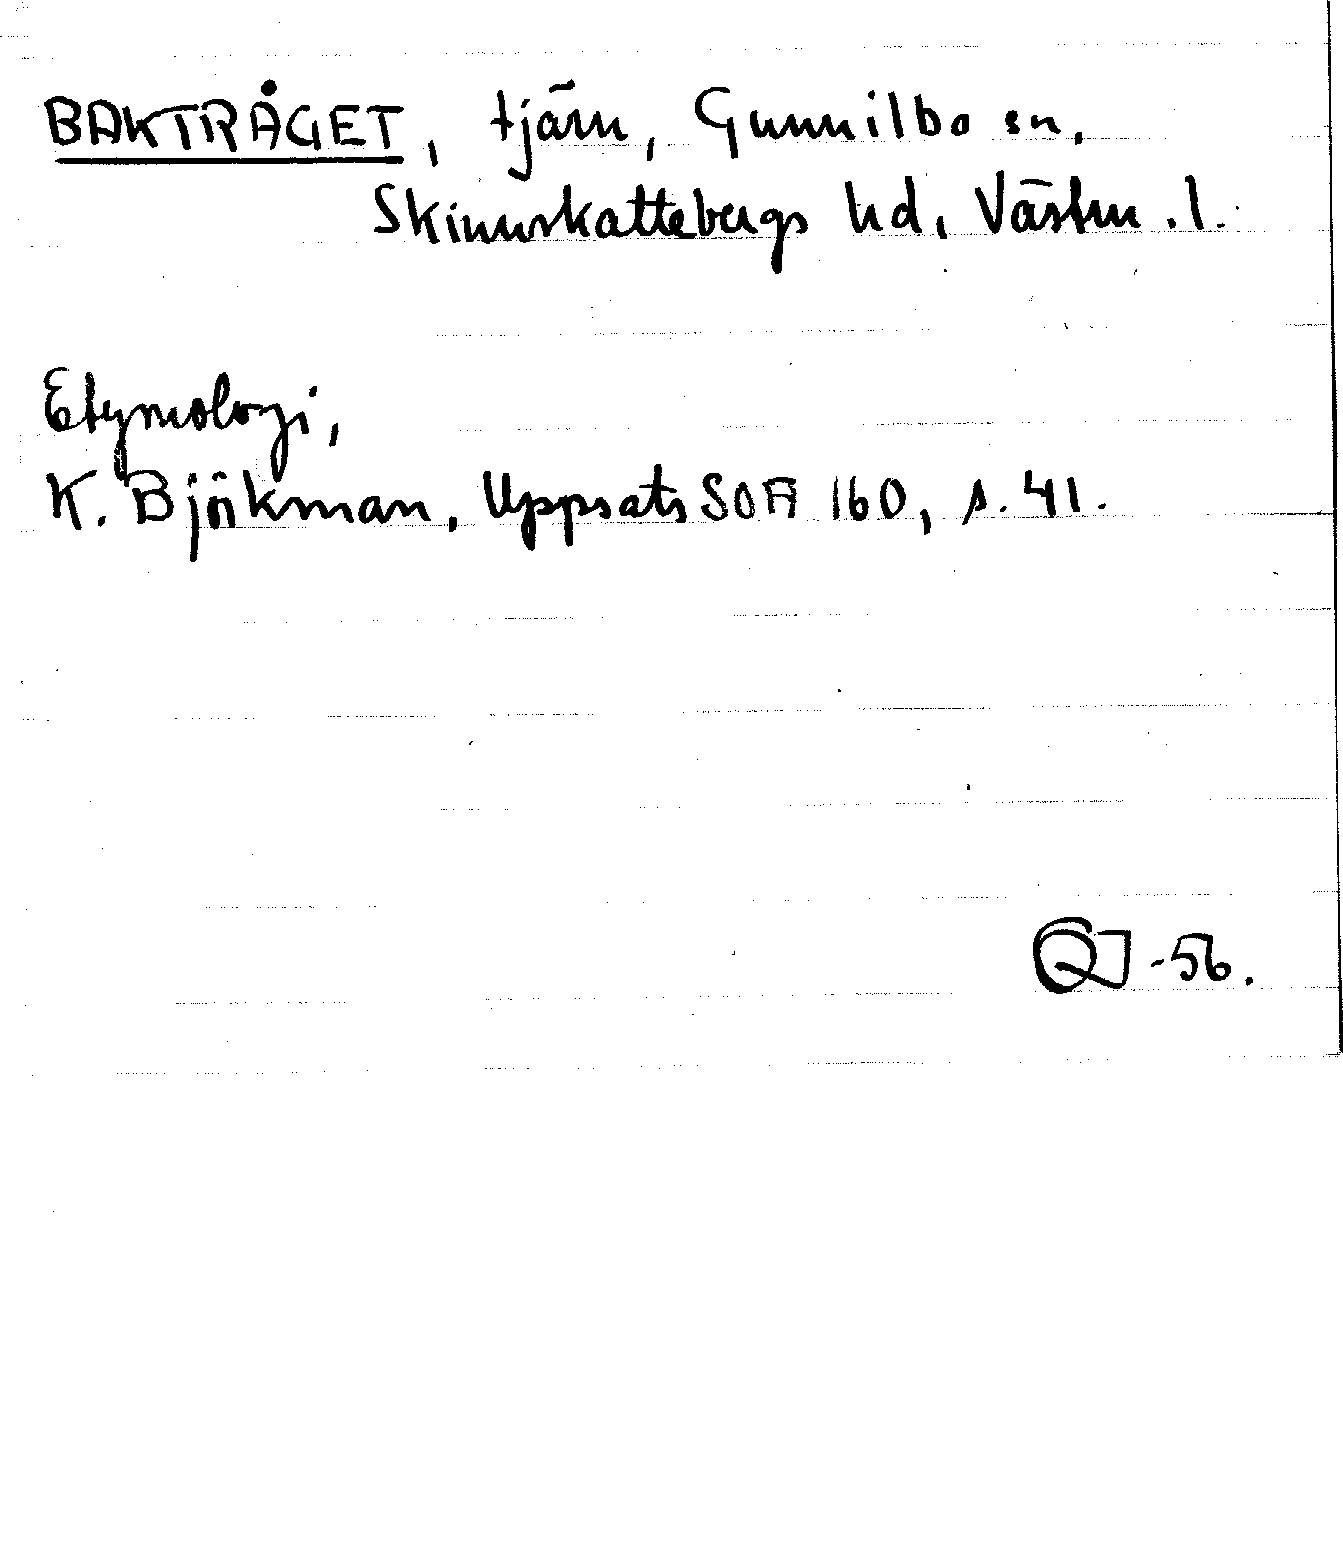 BAKTRÅGET, tjärn, Gunnilbo sn,
Skinnskattebergs hd, Västm. l.
Etymologi,
K. Björkman, Uppsats SOA 160, s. 41.
-56.